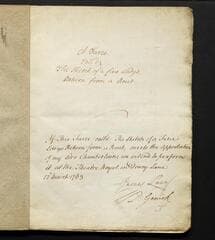 A Farce
call'd
The Sketch of a fine Lady's
Return from a Rout
If this Farce call'd The Sketch of a Fine
Lady's Return from a Rout, meets the approbation
of my Lord Chamberlain, we intend to perform
it at the Theatre Royal in Drury Lane.
17 March 1763
James Lacy
D. Garrick